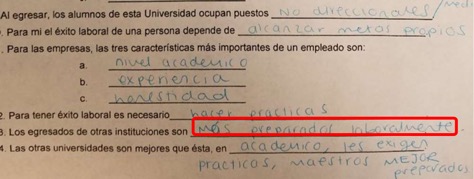 Al egresar, los alumnos de esta Universidad ocupan puestos No direccionales/medi
. Para mi el éxito laboral de una persona depende de alcanzar metas propios
. Para las empresas, las tres características más importantes de un empleado son:
a. nivel academico
b. experiencia
c. honestidad
2. Para tener éxito laboral es necesario hacer practicas
3. Los egresados de otras instituciones son más preparados laboralmente
4. Las otras universidades son mejores que ésta, en academico, les exigen
practicos, maestros MEJOR
preparados